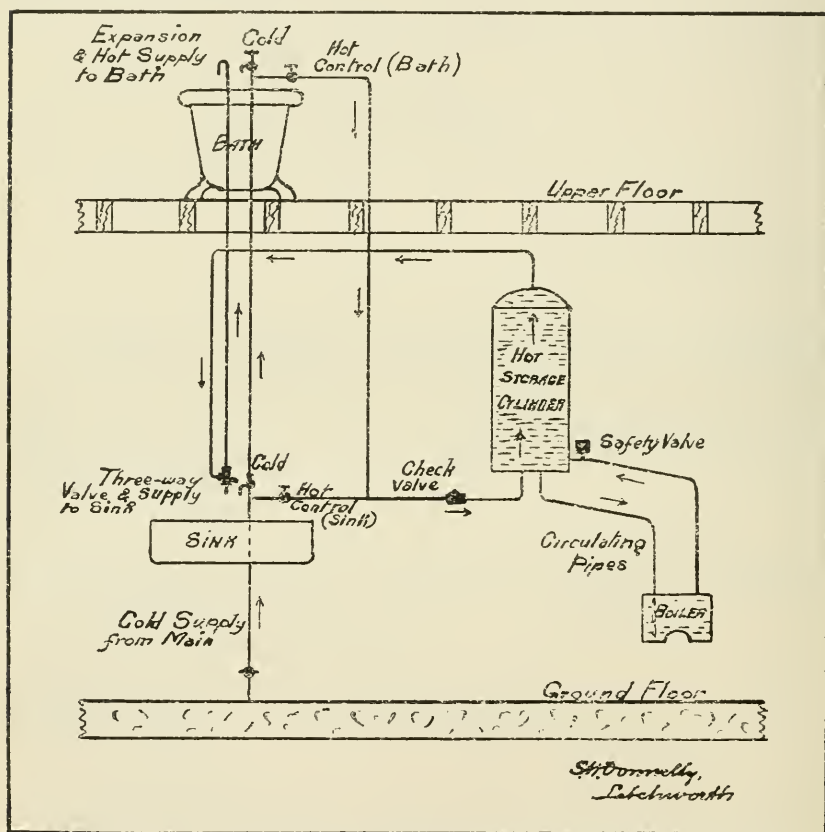 Expansion
& Hot Supply
to Bath
Cold
Hot
Control (Bath)
BATH
Upper Floor
HOT
STORAGE
CYLINDER
Safety Valve
Cold
Three-way
Valve & Supply
to Sink
Hot
Control
(Sink)
Check
Valve
SINK
Circulating
Pipes
BOILER
Cold Supply
from Main
Ground Floor
S.W.Donnelly,
Letchworth